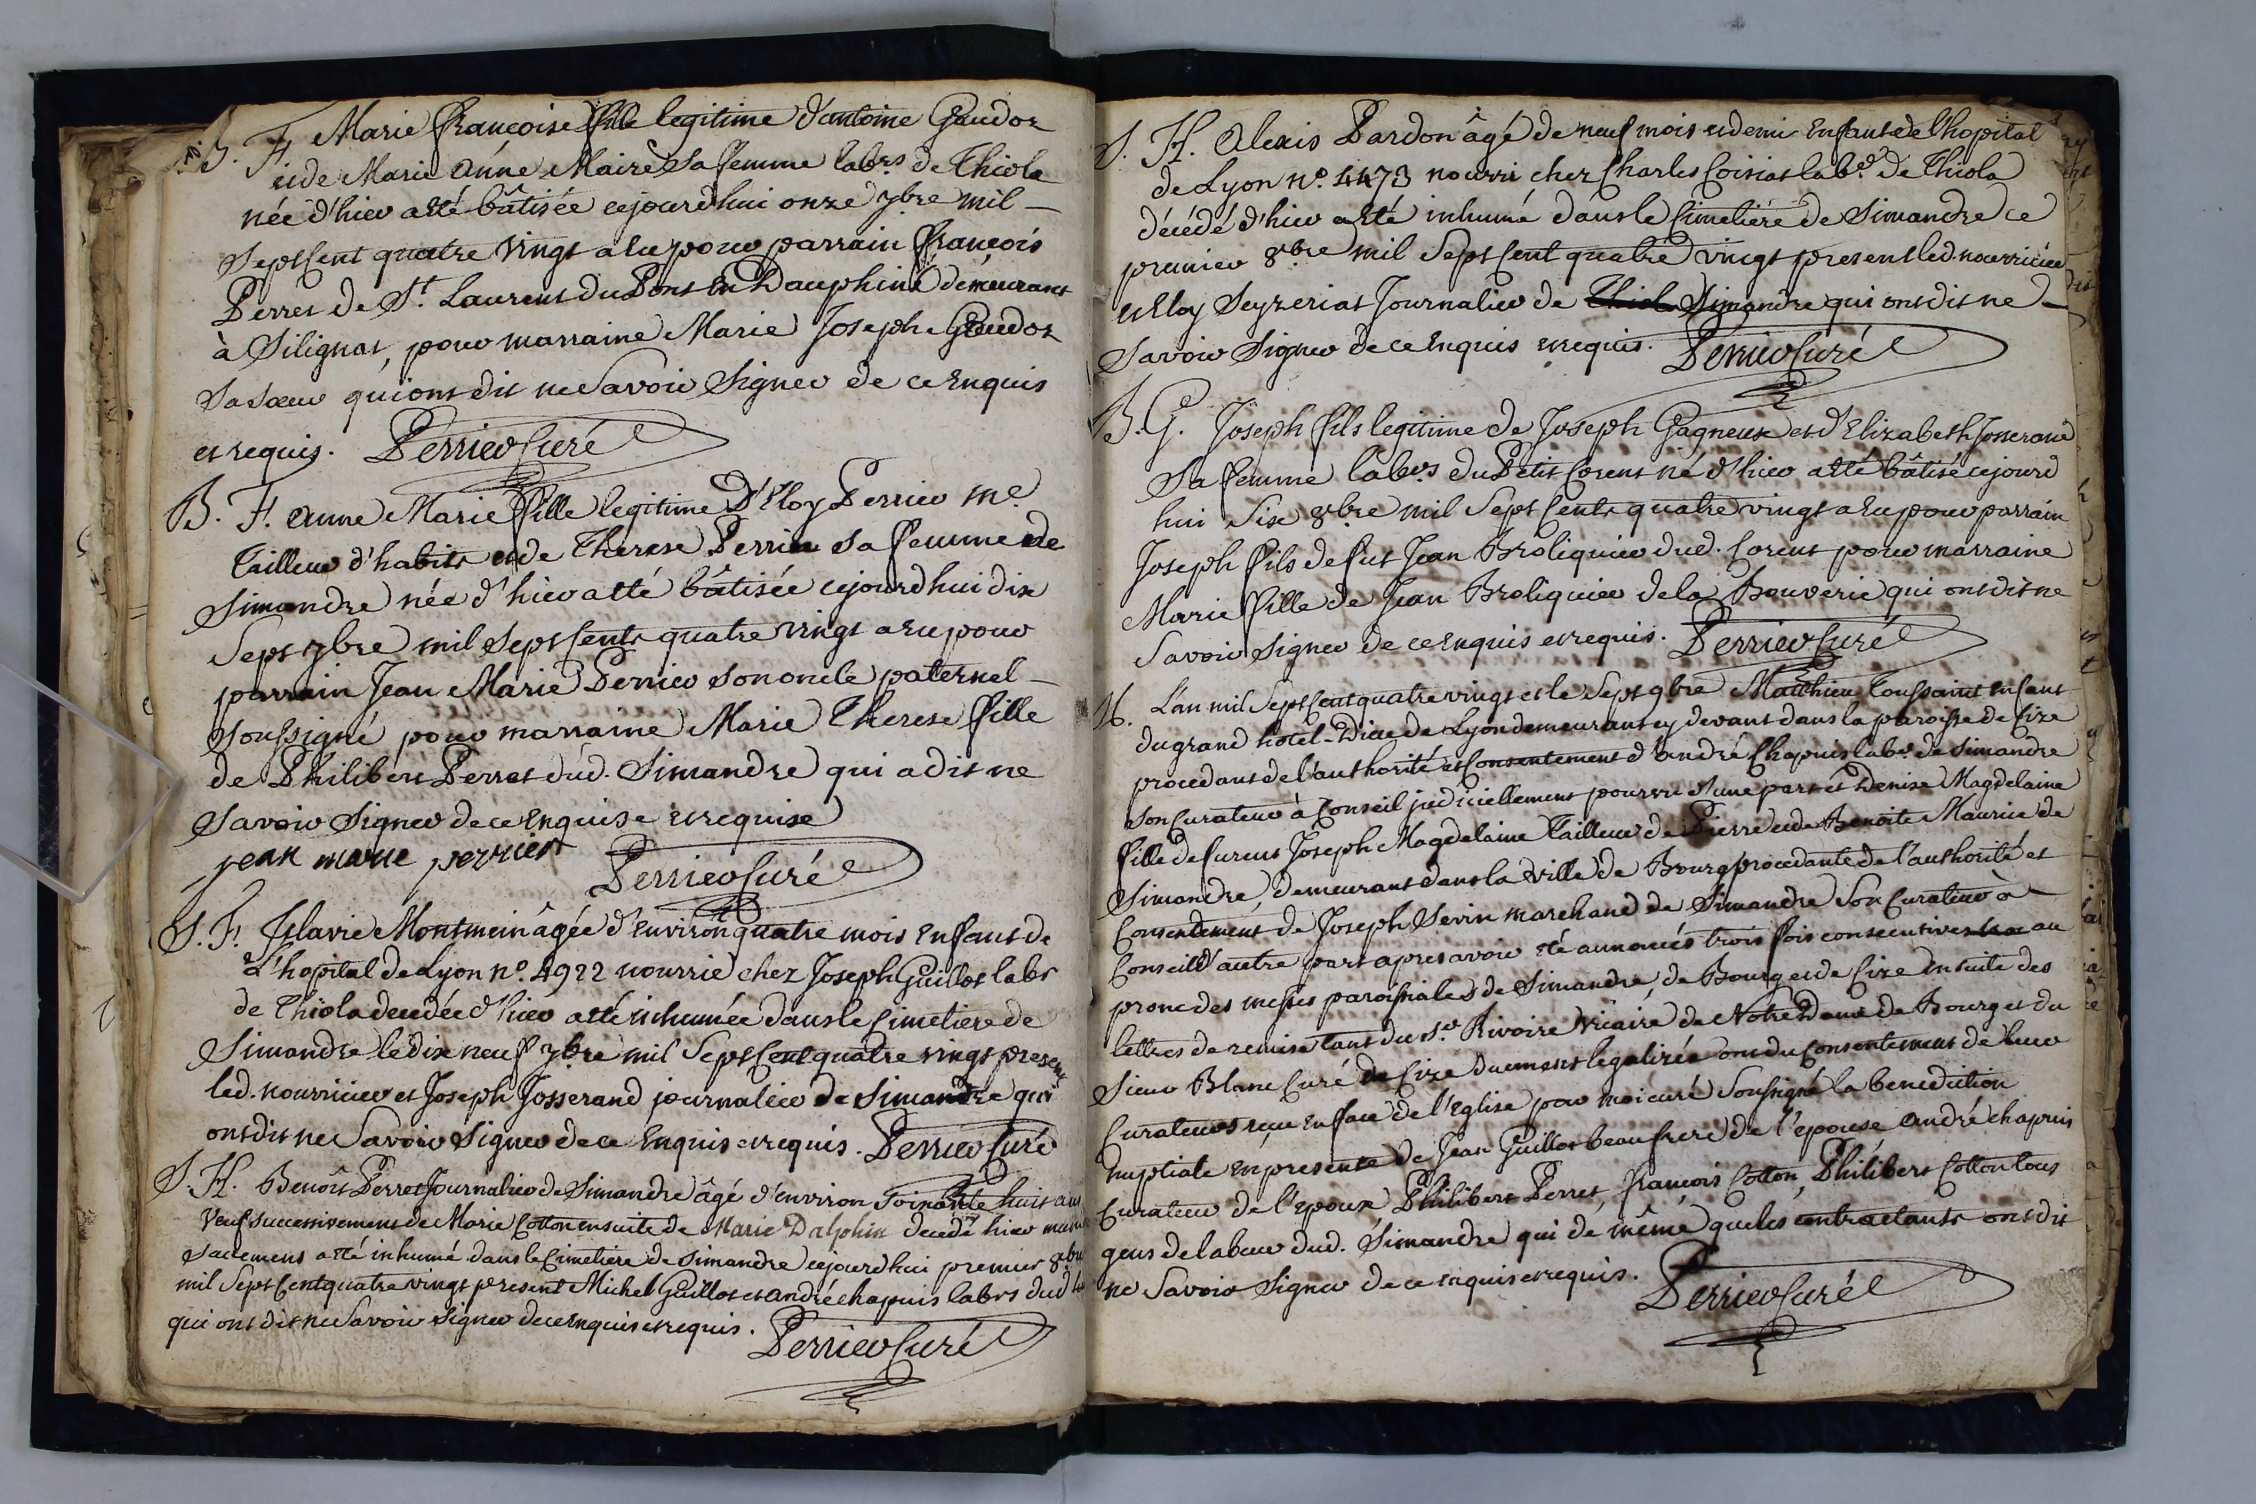 B. F. Marie françoise fille legitime d'antoine Gaudoz
et de Marie Anne Maire sa femme labrs de Thiola
née d'hier a été bâtisée cejourdhui onze 7bre mil
sept cent quatre vingt a eu pour parrain françois
Perret de St. Laurent du Pont en Dauphiné demeurant
à Silignat, pour marraine Marie Joseph Gaudoz
sa sœur qui ont dit ne savoir signer de ce enquis
et requis. Perrier Curé
B. F. Anne Marie fille legitime D'Eloy Perrier me.
Tailleur d'habits et de Therese Perrin sa femme de
Simandre née d'hier a été bâtisée cejourdhui dix
sept 7bre mil sept cents quatre vingt a eu pour
parrain Jean Marie Perrier son oncle paternel
soussigné pour marraine Marie Therese fille
de Philibert Perret dud. Simandre qui a dit ne
savoir signer de ce enquise et requise
jean marie perrier
Perrier Curé
S. F. Clavie Montmein âgée d'environ quatre mois enfant de
L'hopital de Lyon no. 4922 nourrie chez Joseph Guillot labr
de Thiola decedée d'hier a été inhumée dans le Cimetiere de
Simandre le dix neuf 7bre mil sept cent quatre vingt present
led. nourricier et Joseph Josserand journalier de Simandre qui
ont dit ne savoir signer de ce enquis et requis. Perrier Curé
S. H. Benoît Perret Journalier de Simandre âgé d'environ soixante huit ans
veuf successivement de Marie Cotton ensuite de Marie Dalphin decedé hier muni
sacremens a été inhumé dans le Cimetiere de Simandre cejourdhui premier 8bre
mil sept cent quatre vingt present Michel Guillot et andré chapuis labrs dud
qui ont dit ne savoir signer de ce enquis et requis.
Perrier Curé
S. H. Alexis Pardon âgé de neuf mois et demi enfant de l'hopital
de Lyon no. 4473 nourri chez Charles Coisiat labr. de Thiola
décédé d'hier a été inhumé dans le Cimetiére de Simandre ce
premier 8bre mil sept cent quatre vingt present led. nourricier
et Eloy Seyzeriat Journalier de Thiola Simandre qui ont dit ne
savoir signer de ce enquis et requis. Perrier Curé
B. G. Joseph fils legitime de Joseph Gagneux et d'Elizabeth Josserand
sa femme labrs. du Petit Corent né d'hier a été bâtisé cejourd
hui six 8bre mil sept cents quatre vingt a eu pour parrain
Joseph fils de fut Jean Broliquier dud. Corent pour marraine
Marie fille de Jean Broliquier de la Bouverie qui ont dit ne
savoir signer de ce enquis et requis. Perrier Curé
M. L'an mil sept cent quatre vingt et le sept 9bre Matthieu Toussaint enfant
du grand hotel-Dieu de Lyon demeurant cy devant dans la paroisse de Cize
procedant de l'authorité et consentement d'andré Chapuis labr. de Simandre
son Curateur à Conseil judiciellement pourvu d'une part et Denise Magdelaine
fille de furent Joseph Magdelaine Tailleur de Pierre et de Benoite Maurice de
Simandre, demeurant dans la ville de Bourg procedante de l'authorité et
Consentement de Joseph Sevin marchand de Simandre son Curateur à
Conseil d'autre part apres avoir été annoncés trois fois consecutives au
prone des messes paroissiales de Simandre, de Bourg et de Cize ensuite des
lettres de remise tant du sr. Rivoire vicaire de Notre Dame de Bourg et du
Sieur Blanc Curé de Cize duement legalizée ont du Consentement de leur
Curateurs reçu en face de l'Eglise par moi curé soussigné la benediction
nuptiale en presence de Jean Guillot beaufrere de l'epouse andré chapuis
Curateur de l'epoux Philibert Perret, françois Cotton, Philibert Cotton tous
gens de labeur dud. Simandre qui de même que les contractants ont dit
ne savoir signer de ce enquis et requis.
Perrier Curé